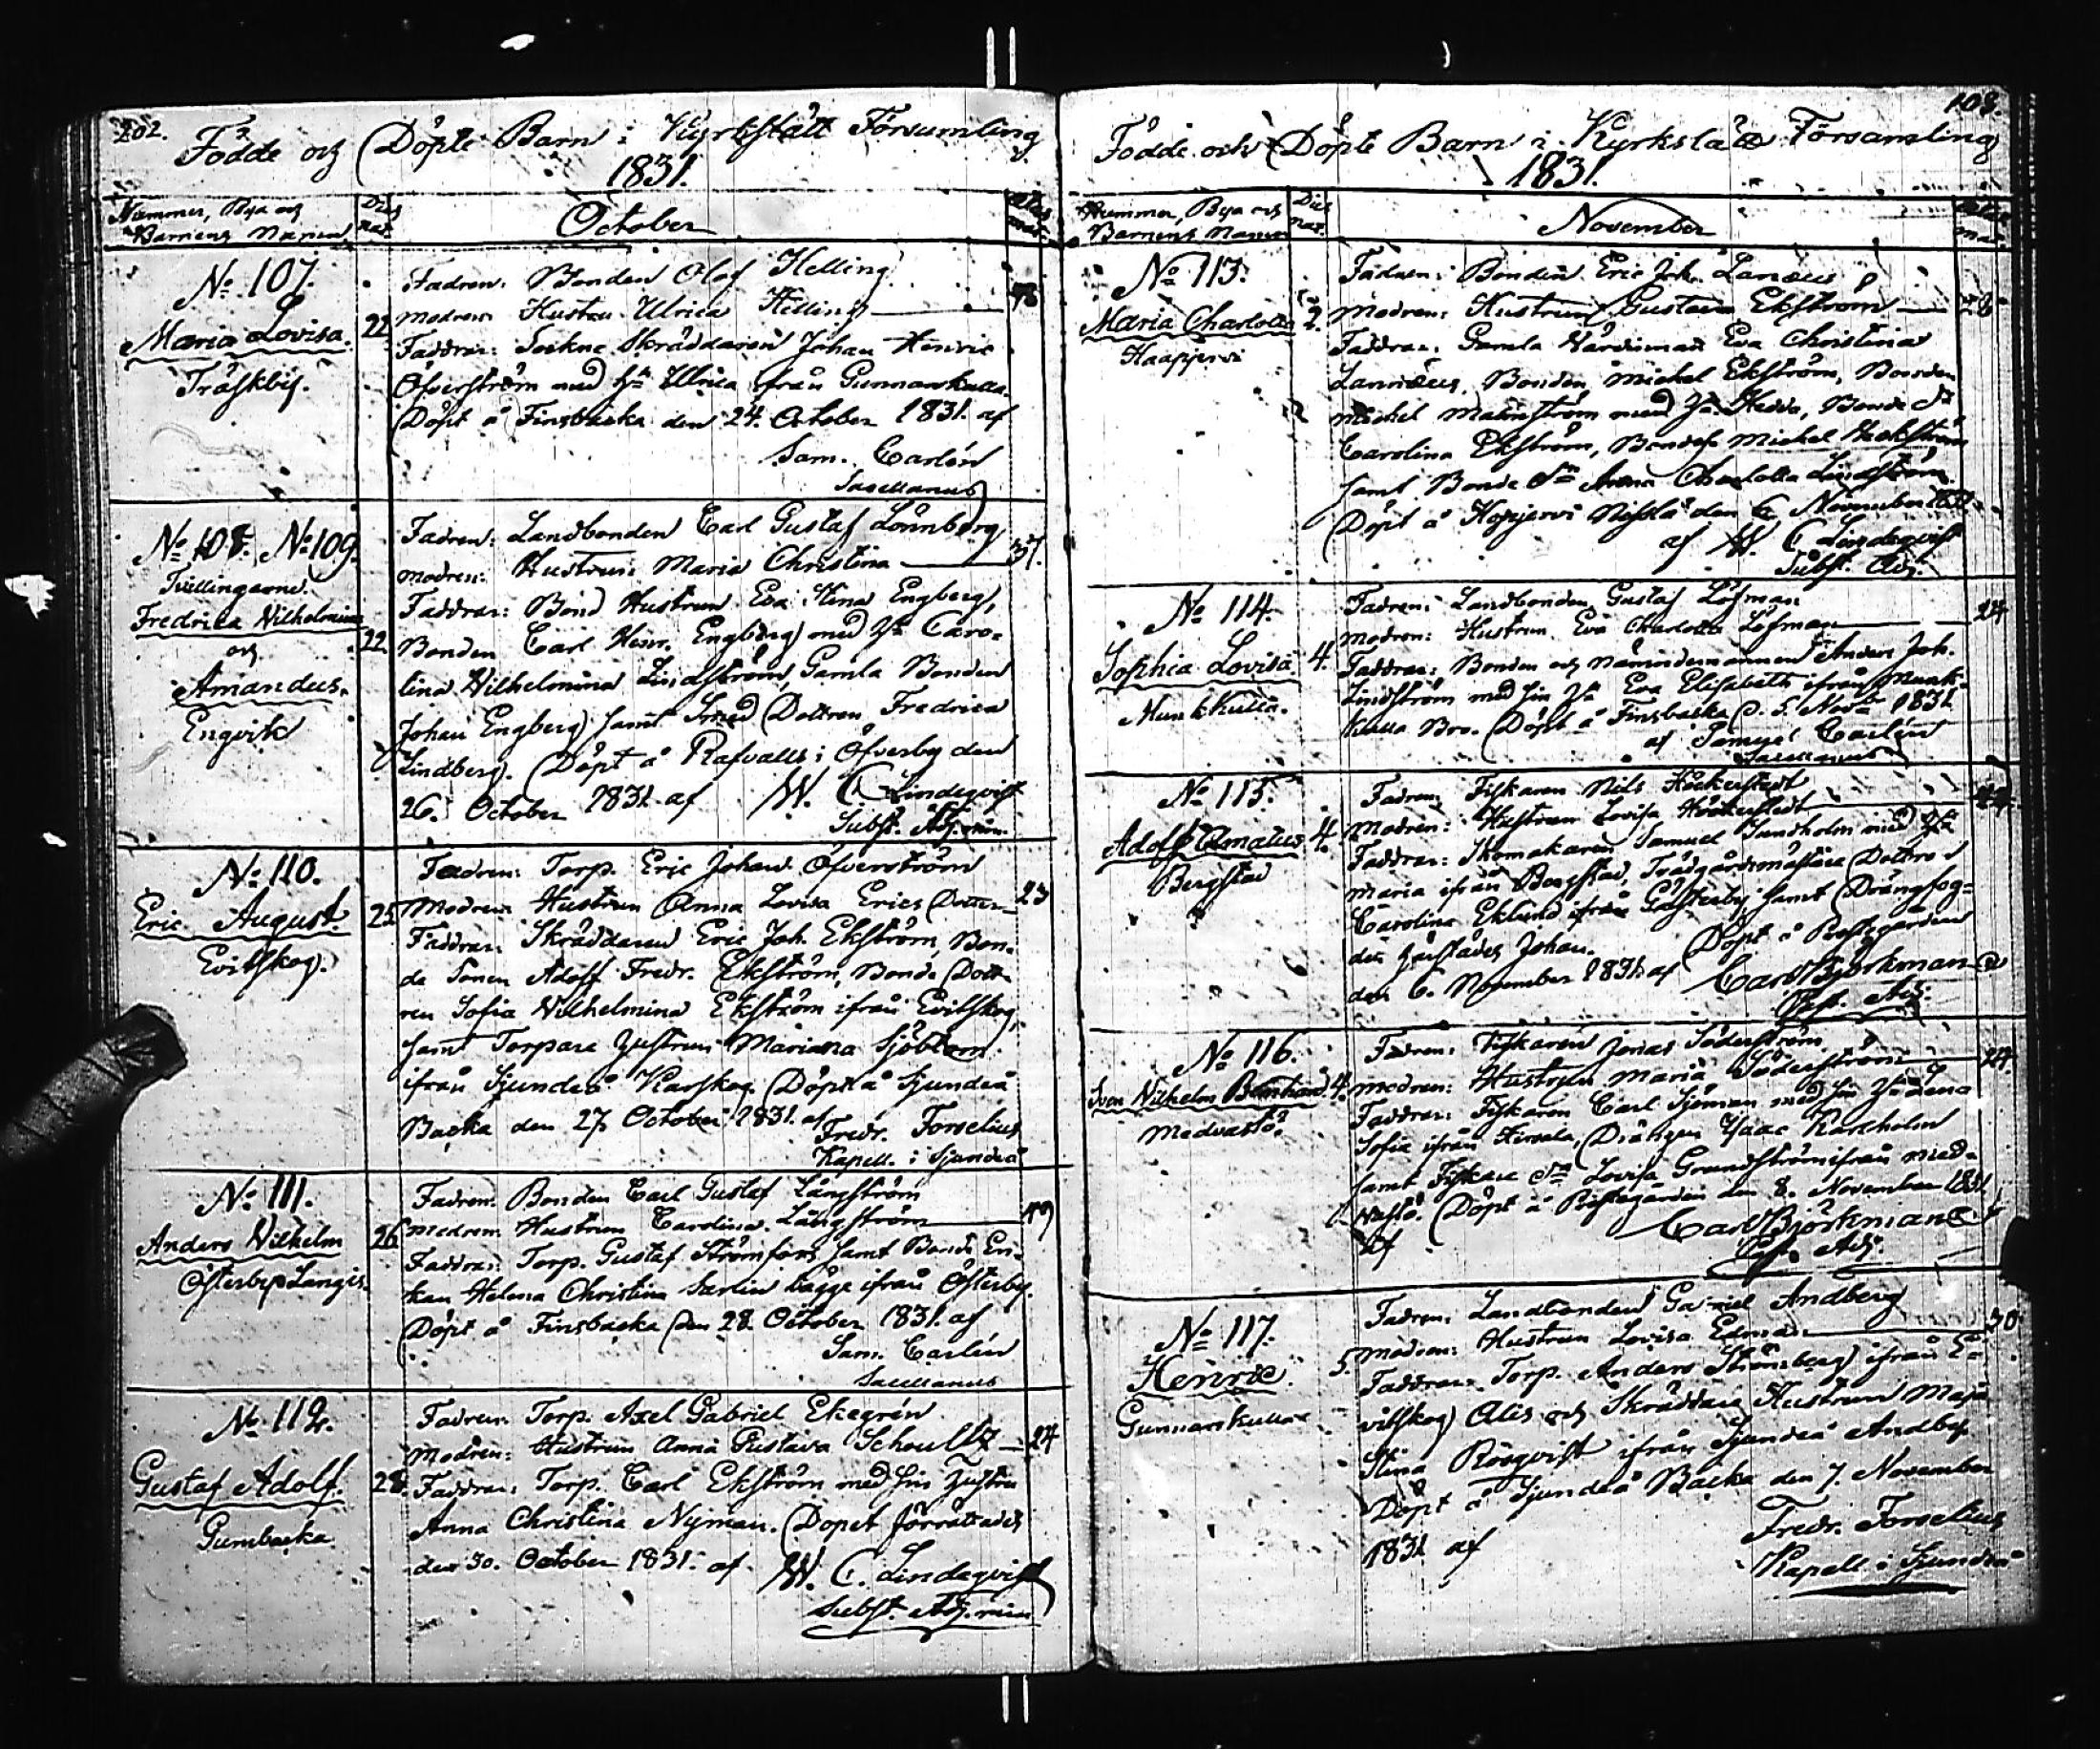 202.
Födde och Döpte Barn i Kyrkslätt Församling
1831.
Nummer, Bya och
Barnens Namn
Dies
nat.
October
Ætas
mat.
No. 107.
Maria Lovisa.
Träskby.
22
Fadren: Bonden Olof Helling
Modren: Hustru Ulrica Helling
Faddrar: Sockne Skräddaren Johan Henric
Öfverström med Hu Ulrica ifrån Gunnarskulla.
Döpt å Finsbacka den 24. October 1831. af
Sam. Carlén
Sacellanus
No 108. No 109.
Tvillingarne.
Fredrica Wilhelmina
och
Amandus.
Engvik
22
Fadren: Landbonden Carl Gustaf Lönnberg
Modren: Hustrun Maria Christina
37.
Faddrar: Bond Hustrun Eva Stina Engberg,
Bonden Carl Henr. Engberg med Hu Caro-
lina Wilhelmina Lindström, Gamla Bonden
Johan Engberg samt Smed Dottren Fredrica
Lindberg. Döpt å Rafvalls i Öfverby den
26. October 1831 af W. C. Lindeqvist
Subst. Adj. min.
No 110.
Eric August.
Evitskog.
25
Fadren: Torp. Eric Johan Öfverström
Modren: Hustrun Anna Lovisa Erics Dotter
23
Faddrar: Skräddaren Eric Joh. Ekström, Bon-
de Sonen Adolf Fredr. Ekström, Bonde Dott-
ren Sofia Wilhelmina Ekström ifrån Evitskog,
samt Torpare Hustrun Mariana Sjöblom
ifrån Sjundeå Karskog. Döpt å Sjundeå
Backa den 27. October 1831. af
Fredr. Forselius
Kapell. i Sjundeå
No 111.
Anders Wilhelm
Österby Långis.
26
Fadren: Bonden Carl Gustaf Långström
Modren: Hustrun Carolina Långström
Faddrar: Torp. Gustaf Strömfors samt Bonde En-
kan Helena Christina Sarlin bägge ifrån Österby.
Döpt å Finsbacka den 28. October 1831. af
Sam. Carlén
Sacellanus
No 112.
Gustaf Adolf.
Gumbacka
28.
Fadren: Torp. Axel Gabriel Ekegrén
Modren: Hustrun Anna Gustava Schoultz
24
Faddrar: Torp. Carl Ekström med sin Hustru
Anna Christina Nyman. Dopet förrättades
den 30. October 1831. af W. C. Lindeqvist
Subst. Adj. min
103.
Födde och Döpte Barn i Kyrkslätt Församling
1831.
Nummer, Bya och
Barnens Namn
Dies
nat.
November
Ætas
mat.
No 113.
Maria Charlotta
Haapjervi
2.
Fadren: Bonden Eric Joh. Lanæus
Modren: Hustrun Gustava Ekström
Faddrar: Gamla Värdinnan Eva Christina
Lannæus, Bonden Michel Ekström, Bonden
Michel Malmström med Hu Hedda, Bonde Dr
Carolina Ekström, Bondes. Michel
samt Bonde Dn Anna Charlotta Lindström
Döpt å Hopjervi den 6 November 1831.
af W. C. Lindeqvist
Subst. Adj.
No 114.
Sophia Lovisa
Munkkulla.
4.
Fadren: Landbonden Gustaf Löfman
Modren: Hustrun Eva Charlotta Löfman
24
Faddrar: Bonden och Nämndemannen Anders Joh.
Lindström med sin Hu Eva Elisabeth ifrån Munk-
kulla Bro. Döpt å Finsbacka d. 5. Novbr 1831
af Samuel Carlén
Sacellanus
No 115.
Adolf Amatus
Bergstad
4.
Fadren: Fiskaren Nils Höckerstedt
Modren: Hustrun Lovisa Höckerstedt
Faddrar: Skomakaren Samuel Sundholm med Hu
Maria ifrån Bergstad, Trädgårdsmästare Dottren
Carolina Eklund ifrån Gästerby samt Drängfog-
den Johan. Döpt å Prestegården
den 6. November 1831. af Carl Björkman
Adj.
No 116.
Sven Wilhelm Bernhard
Medvastö.
4.
Fadren: Fiskaren Jonas Söderström
Modren: Hustrun Maria Söderström
24.
Faddrar: Fiskaren Carl Sjöman med sin Hu Lena
Sofia ifrån Hirsala, Drängen Isaac Karlholm
samt Fiskare Dn Lovisa Grundström ifrån Med-
vastö. Döpt å Prestegården den 8. November 1831
af Carl Björkman
Adj.
No 117.
Henric.
Gunnarskulla
5.
Fadren: Landbonden Gabriel Andberg
Modren: Hustrun Lovisa Edman
30
Faddrar: Torp. Anders Strömberg ifrån E-
vitskog Alis och Skräddare Hustrun Maja
Stina Rosqvist ifrån Sjundeå Andby.
Döpt å Sjundeå Backa den 7. November
1831 af Fredr. Forselius
Kapell. i Sjundeå